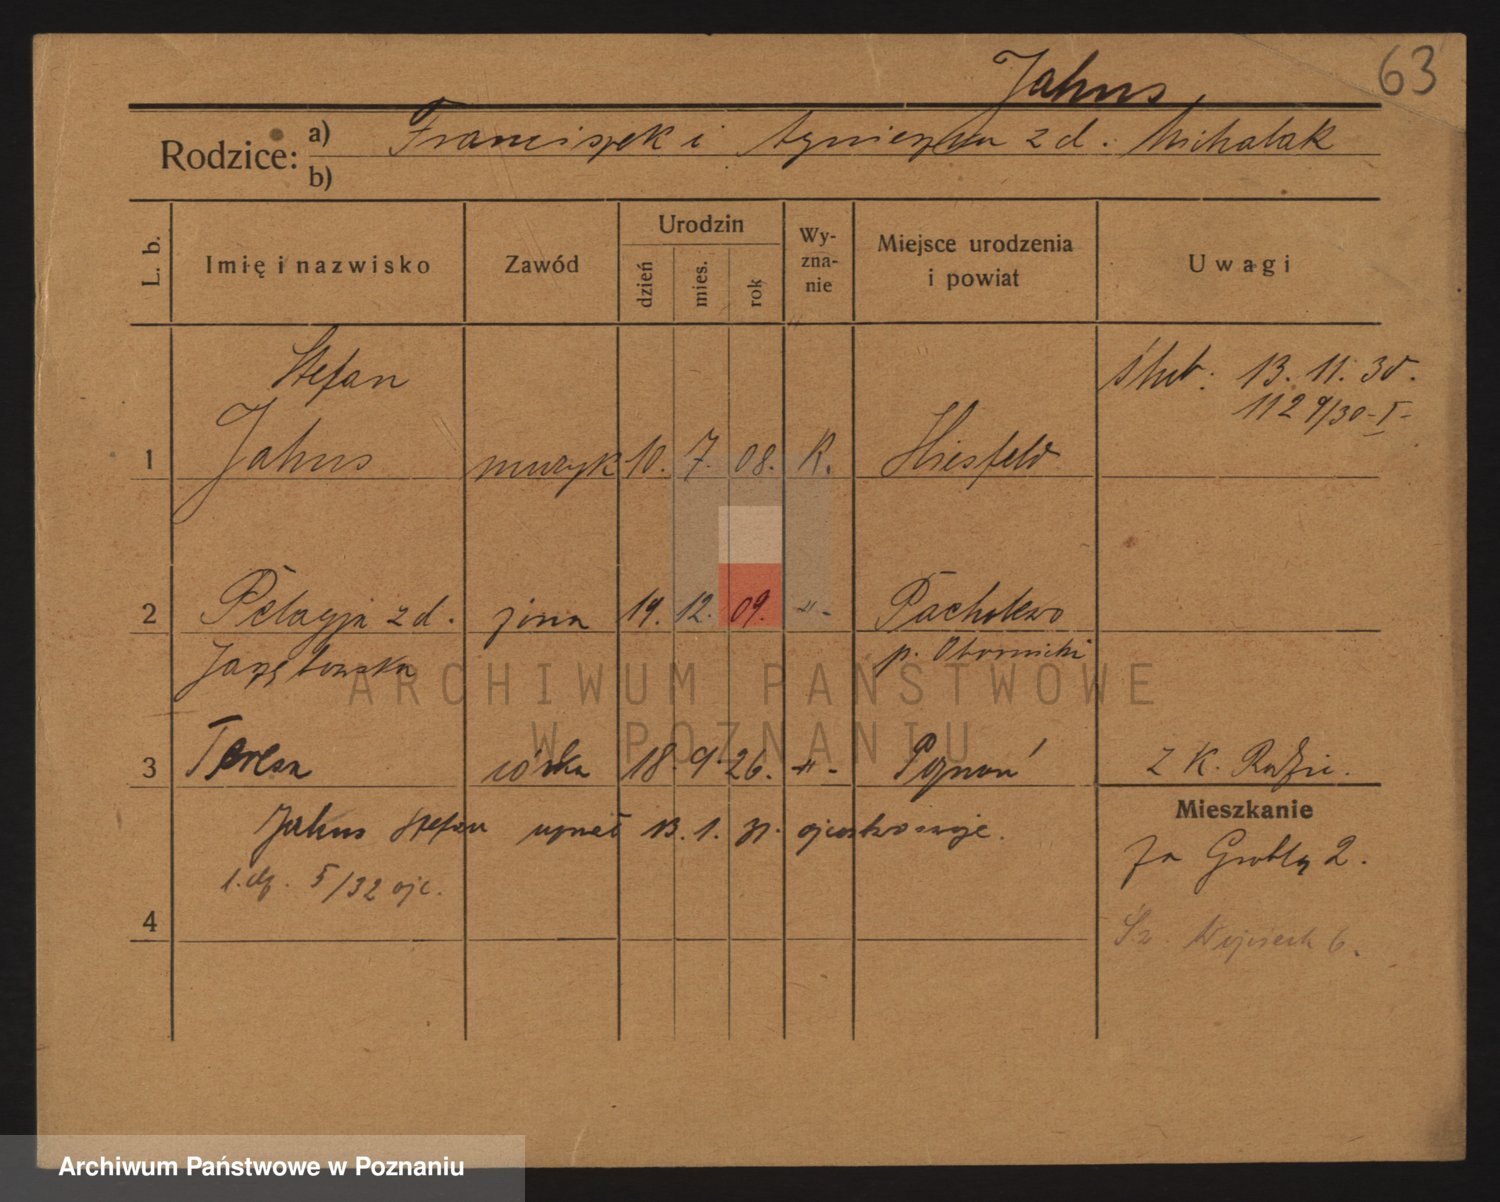 63
Jahns
Rodzice: a) Franciszek i Agnieszka z d. Michalak
b)
L. b. Imię i nazwisko Zawód Urodzin dzień mies. rok Wy-zna-nie Miejsce urodzenia i powiat Uwagi
Stefan
Ślub: 13. 11. 30.
1129/30-I-
1 Jahns muzyk 10. 7. 08. K. Hiesfeld
2 Pelagja z d. żona 19. 12. 09. -"- Pacholewo
p. Obornicki
3 Teresa córka 18. 9. 26. -"- Poznań z K. Rodzic.
Mieszkanie
Jahns Stefan 13. 1. 31.
Za Groblą 2.
5/32
4
Św. Wojciech 6.
ARCHIWUM PAŃSTWOWE
W POZNANIU
Archiwum Państwowe w Poznaniu